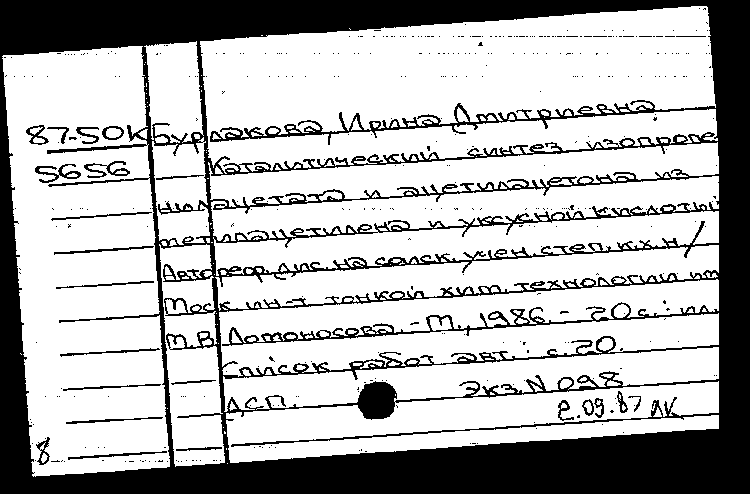 87-50К Бурлакова, Ирина Дмитриевна
5656 Каталитический синтез изопропе
нилацетата и ацетилацетона из
метилацетилена и уксусной кислоты
Автореф. дис. на соиск. учен. степ. к.х.н/
Моск. ин-т тонкой хим. технологии им
М.В. Ломоносова. - М., 1986. - 20 с.: ил.
Список работ авт.: с. 20.
ДСП. Экз. N 098
2.09.87 ЛК
8